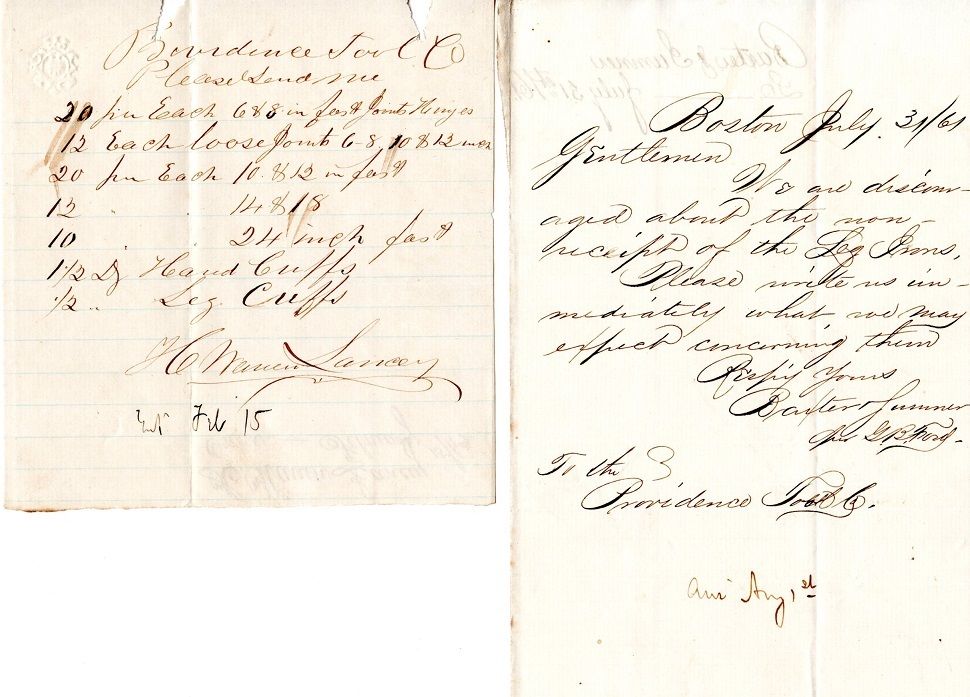 Providence Tool Co
Please Send me
20 pr Each 6 & 8 in fast Joints Hinges
12 Each loose Joints 6-8, 10 & 12 inch
20 pr Each 10 & 12 in fast
12 " 14 & 18
10 " 24 inch fast
1 1/2 Dz Hand Cuffs
1/2 " Leg Cuffs
H Warren Lancey
Feb 15
Boston July. 31/61
Gentlemen
We are discour-
aged about the non-
receipt of the Leg Irons.
Please write us im-
mediately what we may
expect concerning them
Resp'y Yours
Baxter & Sumner
per G.B. Ford.
To the
Providence Tool Co.
Ans Aug 1st